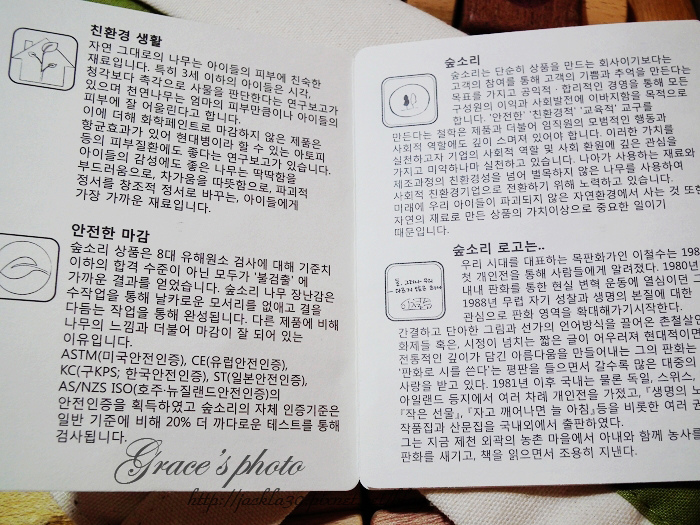 친환경 생활
자연 그대로의 나무는 아이들의 피부에 친숙한
재료입니다. 특히 3세 이하의 아이들은 시각,
청각보다 촉각으로 사물을 판단한다는 연구보고가
있으며 천연나무는 엄마의 피부만큼이나 아이들의
피부에 잘 어울린다고 합니다.
이에 더해 화학페인트로 마감하지 않은 제품은
항균효과가 있어 현대병이라 할 수 있는 아토피
등의 피부질환에도 좋다는 연구보고가 있습니다.
아이들의 감성에도 좋은 나무는 딱딱함을
부드러움으로, 차가움을 따뜻함으로, 파괴적
정서를 창조적 정서로 바꾸는, 아이들에게
가장 가까운 재료입니다.
안전한 마감
숲소리 상품은 8대 유해원소 검사에 대해 기준치
이하의 합격 수준이 아닌 모두가 '불검출' 에
가까운 결과를 얻었습니다. 숲소리 나무 장난감은
수작업을 통해 날카로운 모서리를 없애고 결을
다듬는 작업을 통해 완성됩니다. 다른 제품에 비해
나무의 느낌과 더불어 마감이 잘 되어 있는
이유입니다.
ASTM(미국안전인증), CE(유럽안전인증),
KC(구KPS; 한국안전인증), ST(일본안전인증),
AS/NZS ISO(호주·뉴질랜드안전인증)의
안전인증을 획득하였고 숲소리의 자체 인증기준은
일반 기준에 비해 20% 더 까다로운 테스트를 통해
검사됩니다.
숲소리
숲소리는 단순히 상품을 만드는 회사이기보다는
고객의 참여를 통해 고객의 기쁨과 추억을 만든다는
목표를 가지고 공익적·합리적인 경영을 통해 모든
구성원의 이익과 사회발전에 이바지함을 목적으로
합니다. '안전한' '친환경적' '교육적' 교구를
만든다는 철학은 제품과 더불어 임직원의 모범적인 행동과
사회적 역할에도 깊이 스며져 있어야 합니다. 이러한 가치를
실천하고자 기업의 사회적 역할 및 사회 환원에 깊은 관심을
가지고 미약하나마 실천하고 있습니다. 나아가 사용하는 재료와
제조과정의 친환경성을 넘어 벌목하지 않은 나무를 사용하여
사회적 친환경기업으로 전환하기 위해 노력하고 있습니다.
미래에 우리 아이들이 파괴되지 않은 자연환경에서 사는 것 또한
자연의 재료로 만든 상품의 가치이상으로 중요한 일이기
때문입니다.
숲소리 로고는..
우리 시대를 대표하는 목판화가인 이철수는 198
첫 개인전을 통해 사람들에게 알려졌다. 1980년
내내 판화를 통한 현실 변혁 운동에 열심이던 그
1988년 무렵 자기 성찰과 생명의 본질에 대한
관심으로 판화 영역을 확대해가기시작한다.
간결하고 단아한 그림과 선가의 언어방식을 끌어온 촌철살인
화제들 혹은, 시정이 넘치는 짧은 글이 어우러져 현대적이면
전통적인 깊이가 담긴 아름다움을 만들어내는 그의 판화는
'판화로 시를 쓴다'는 평판을 들으면서 갈수록 많은 대중의
사랑을 받고 있다. 1981년 이후 국내는 물론 독일, 스위스,
아일랜드 등지에서 여러 차례 개인전을 가졌고, 『생명의 노
『작은 선물』, 『자고 깨어나면 늘 아침』등을 비롯한 여러 권
작품집과 산문집을 국내외에서 출판하였다.
그는 지금 제천 외곽의 농촌 마을에서 아내와 함께 농사를
판화를 새기고, 책을 읽으면서 조용히 지낸다.
Grace's photo